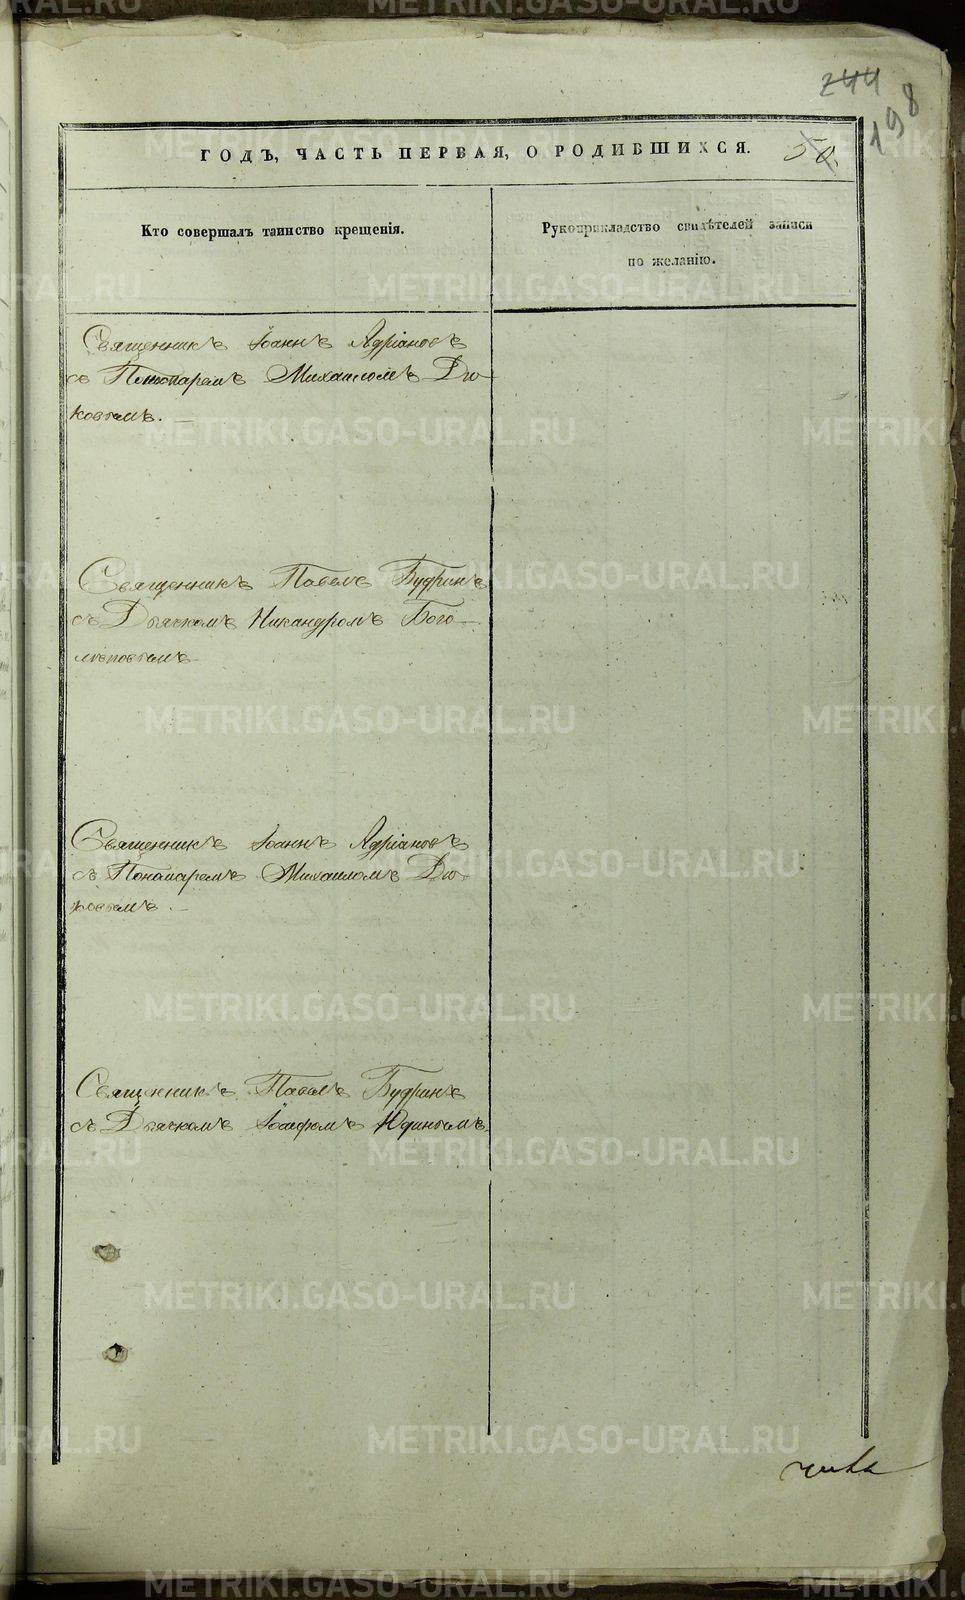 244
198
ГОДЪ, ЧАСТЬ ПЕРВАЯ, О РОДИВШИХСЯ. 50.
Кто совершалъ таинство крещенія.
Рукоприкладство свидѣтелей записи
по желанію.
Священникъ Іоаннъ Адріановъ
съ Пономаремъ Михаиломъ Дю-
ковымъ.
Священникъ Павелъ Будринъ
съ Дьячкомъ Никандромъ Бого-
лѣповымъ
Священникъ Іоаннъ Адріановъ
съ Пономаремъ Михаиломъ Дю-
ковымъ.
Священникъ Павелъ Будринъ
съ Дьячкомъ Іосифомъ Юдинымъ.
METRIKI.GASO-URAL.RU